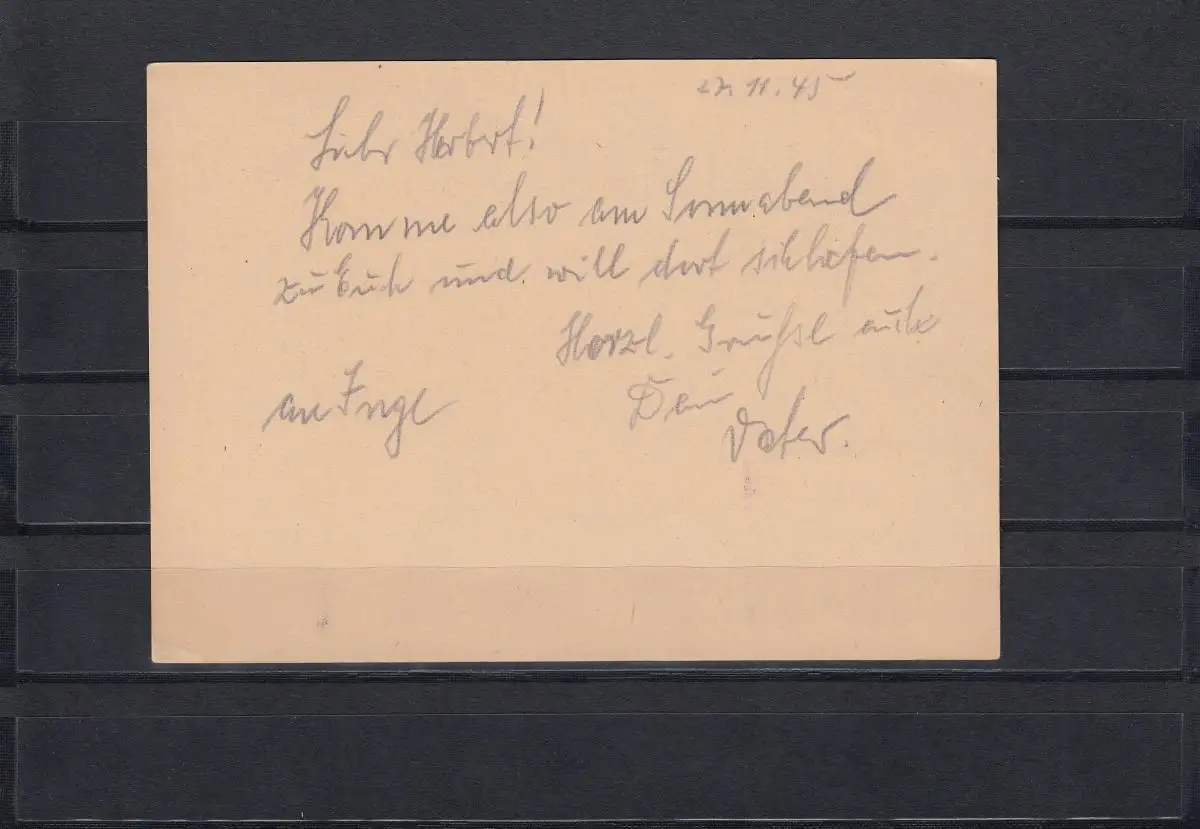 27.11.45
Lieber Herbert!
Komme also am Sonnabend
zu Euch und will dort schlafen.
Herzl. Grüße auch
an Inge Dein
Vater.